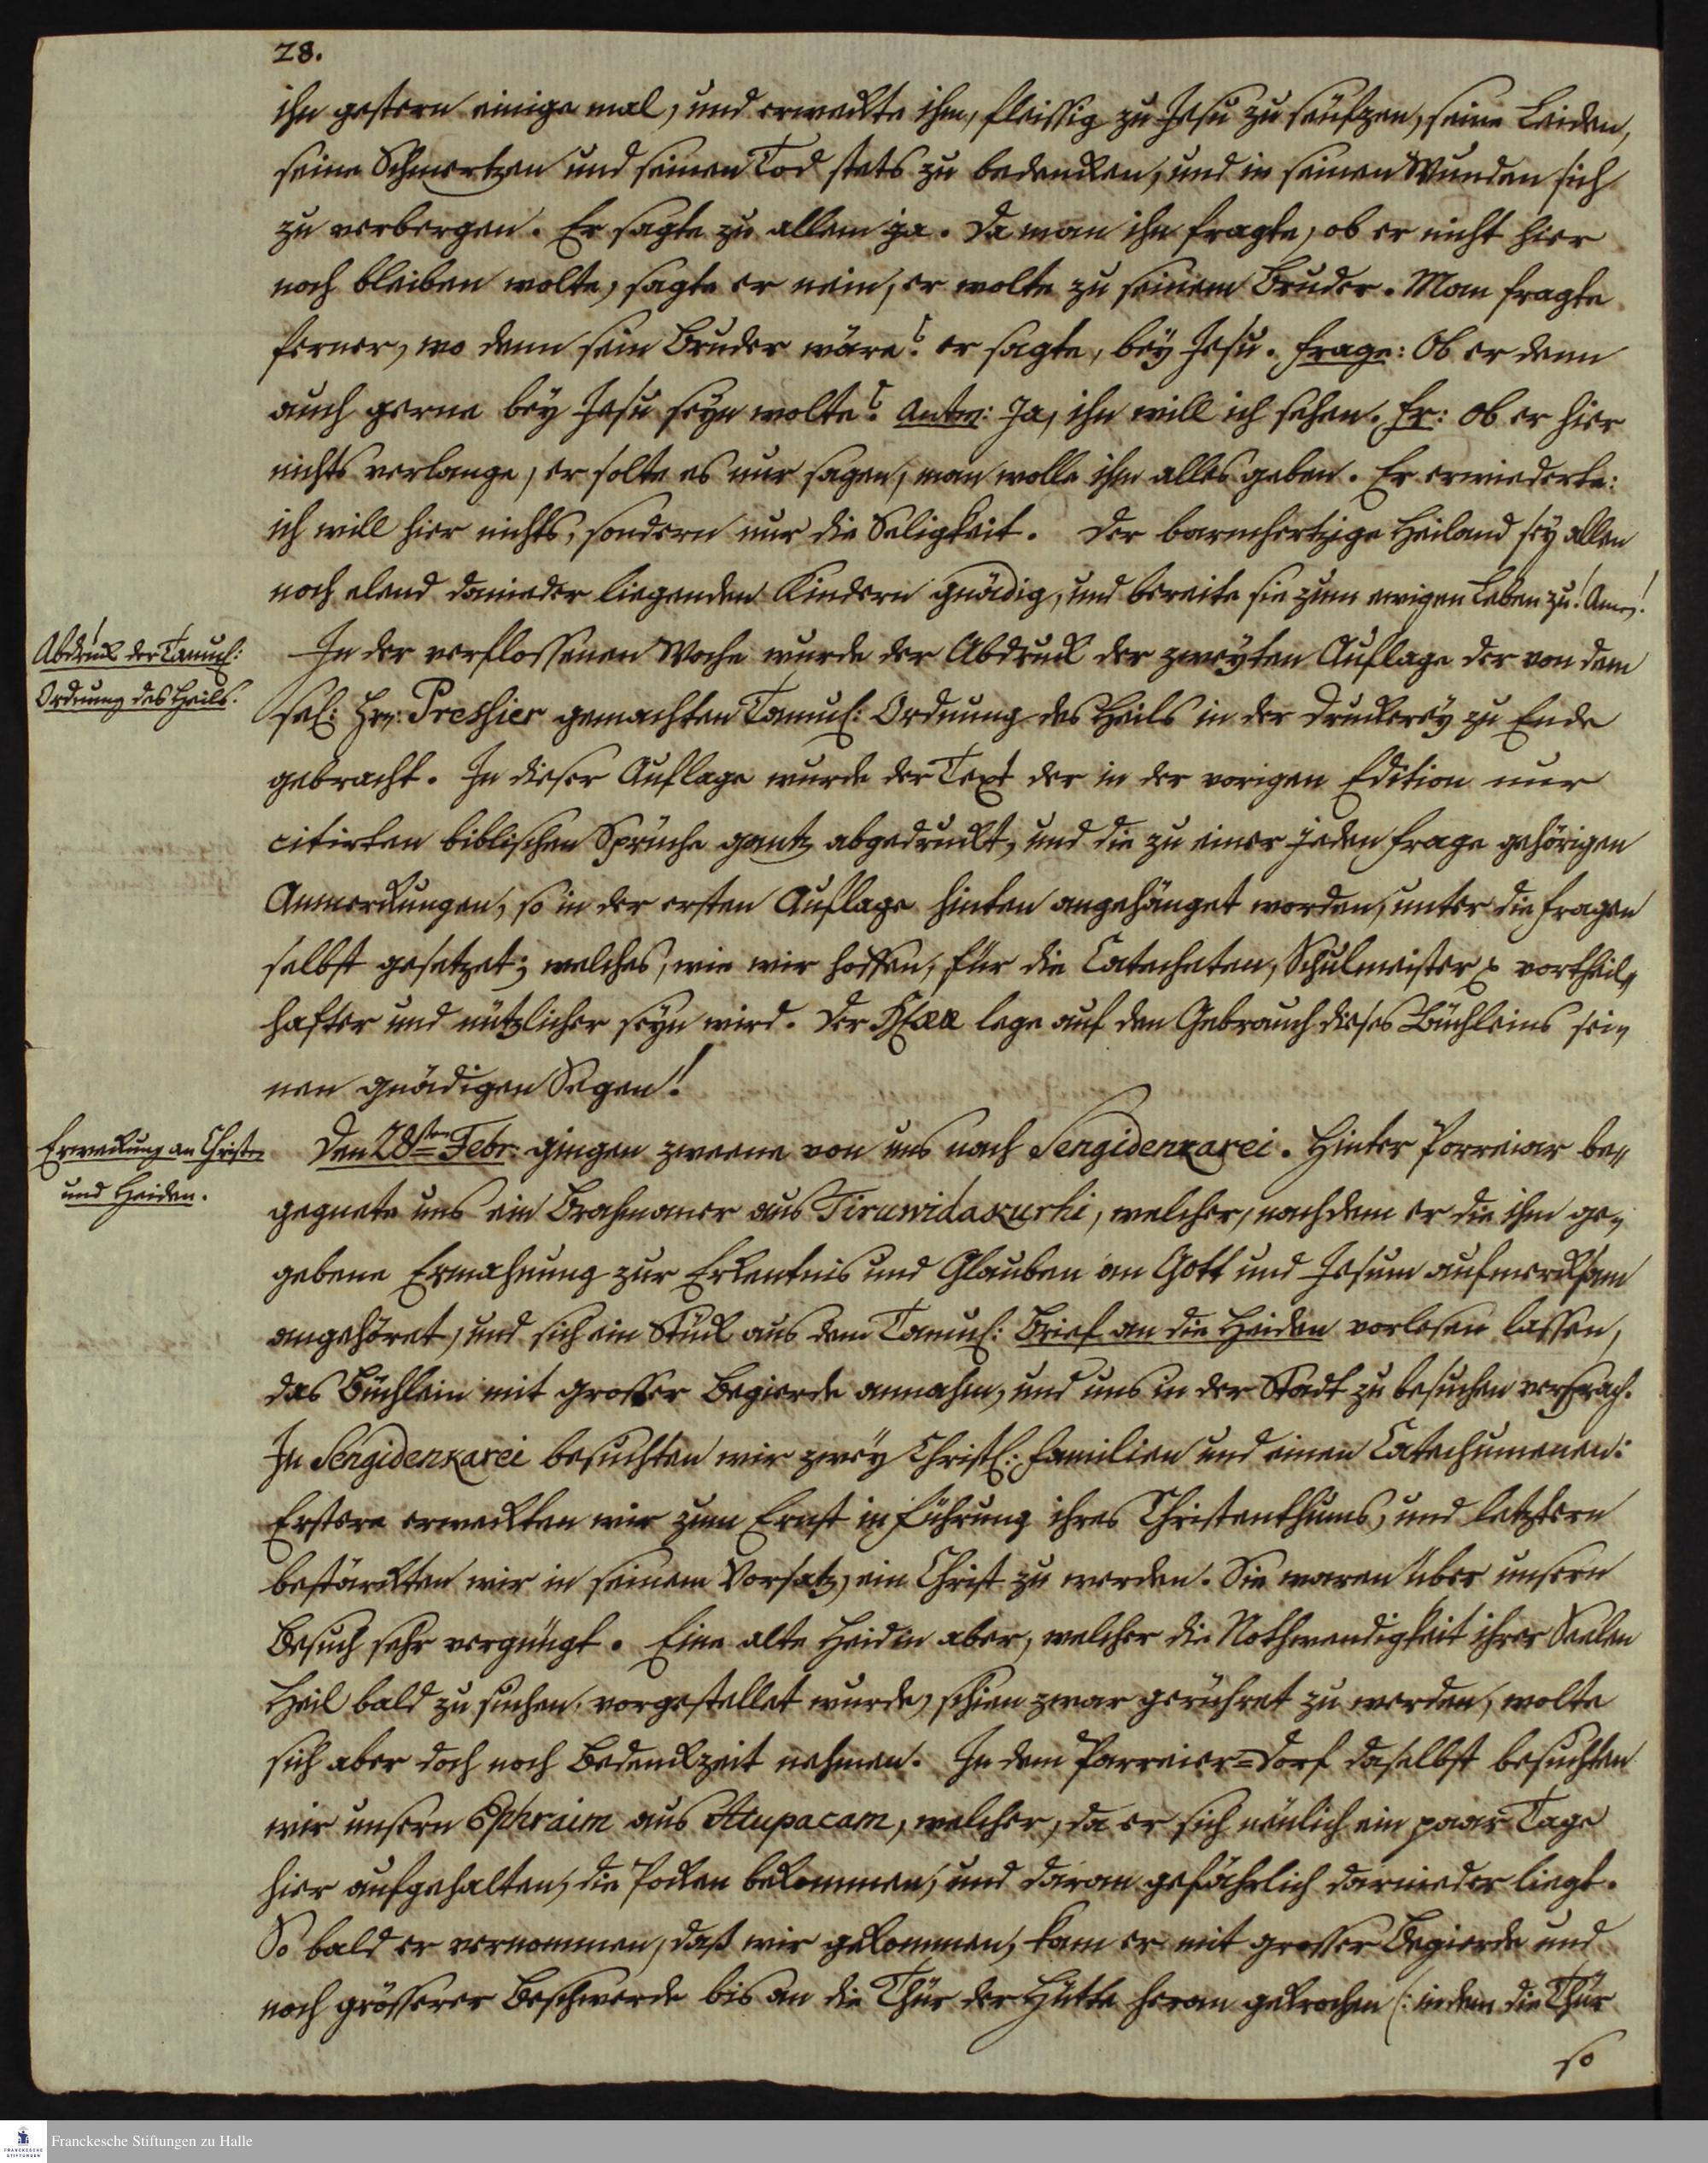 28.
ihn gestern einige mal, und erweckte ihn, fleissig zu Jesu zu seufzen, seine Leiden,
seine Schmertzen und seinen Tod stets zu bedencken, und in seinen Wunden sich
zu verbergen. Er sagte zu allem ja. Da man ihn fragte, ob er nicht hier
noch bleiben wolte, sagte er nein, er wolte zu seinem Bruder. Man fragte
ferner, wo denn sein Bruder wäre? er sagte, bey Jesu. Frage: Ob er denn
auch gerne bey Jesu seyn wolte? Antw: Ja, ihn will ich sehen. Fr: Ob er hier
nichts verlange, er solte es nur sagen, man wolle ihm alles geben. Er erwiederte:
ich will hier nichts, sondern nur die Seligkeit. Der barmhertzige Heiland sey allen
noch elend danieder liegenden Kindern gnädig, und bereite sie zum ewigen Leben zu! Amen!
Abdruck der Tamul:
Ordnung des Heils.
In der verflossenen Woche wurde der Abdruck der zweyten Auflage der von dem
sel: Hrn: Pressier gemachten Tamul: Ordnung des Heils in der Druckerey zu Ende
gebracht. In dieser Auflage wurde der Text der in der vorigen Edition nur
citirten biblischen Sprüche gantz abgedruckt, und die zu einer jeden Frage gehörigen
Anmerckungen, so in der ersten Auflage hinten angehänget worden, unter die Fragen
selbst gesetzet; welches, wie wir hoffen, für die Catecheten, Schulmeister vortheil-
hafter und nützlicher seyn wird. Der HErr lege auf den Gebrauch dieses Büchleins sei-
nen gnädigen Segen!
Erweckung an Christen
und Heiden.
Den 28sten Febr. gingen zweene von uns nach Sengidenkarei. Hinter Porreiar be-
gegnete uns ein Brahmaner aus Tiruwidakurhi, welcher, nachdem er die ihm ge-
gebene Ermahnung zur Erkentnis und Glauben an Gott und Jesum aufmercksam
angehöret, und sich ein Stück aus dem Tamul: Brief an die Heiden vorlesen lassen,
das Büchlein mit grosser Begierde annahm, und uns in der Stadt zu besuchen versprach.
In Sengidenkarei besuchten wir zwey Christl: Familien und einen Catechumenen:
Erstere erweckten wir zum Ernst in Führung ihres Christenthums, und letztern
bestärckten wir in seinem Vorsatz, ein Christ zu werden. Sie waren über unsern
Besuch sehr vergnügt. Eine alte Heidin aber, welcher die Nothwendigkeit ihrer Seelen
Heil bald zu suchen, vorgestellet wurde, schien zwar gerühret zu werden, wolte
sich aber doch noch Bedenckzeit nehmen. In dem Parreier-Dorf daselbst besuchten
wir unsern Ephraim aus Attupacam, welcher, da er sich neulich ein paar Tage
hier aufgehalten, die Pocken bekommen, und daran gefährlich darnieder liegt.
So bald er vernommen, daß wir gekommen, kam er mit grosser Begierde und
noch grösserer Beschwerde bis an die Thür der Hütte heran gekrochen (: indem die Thür
so
FRANCKESCHE STIFTUNGEN
Franckesche Stiftungen zu Halle